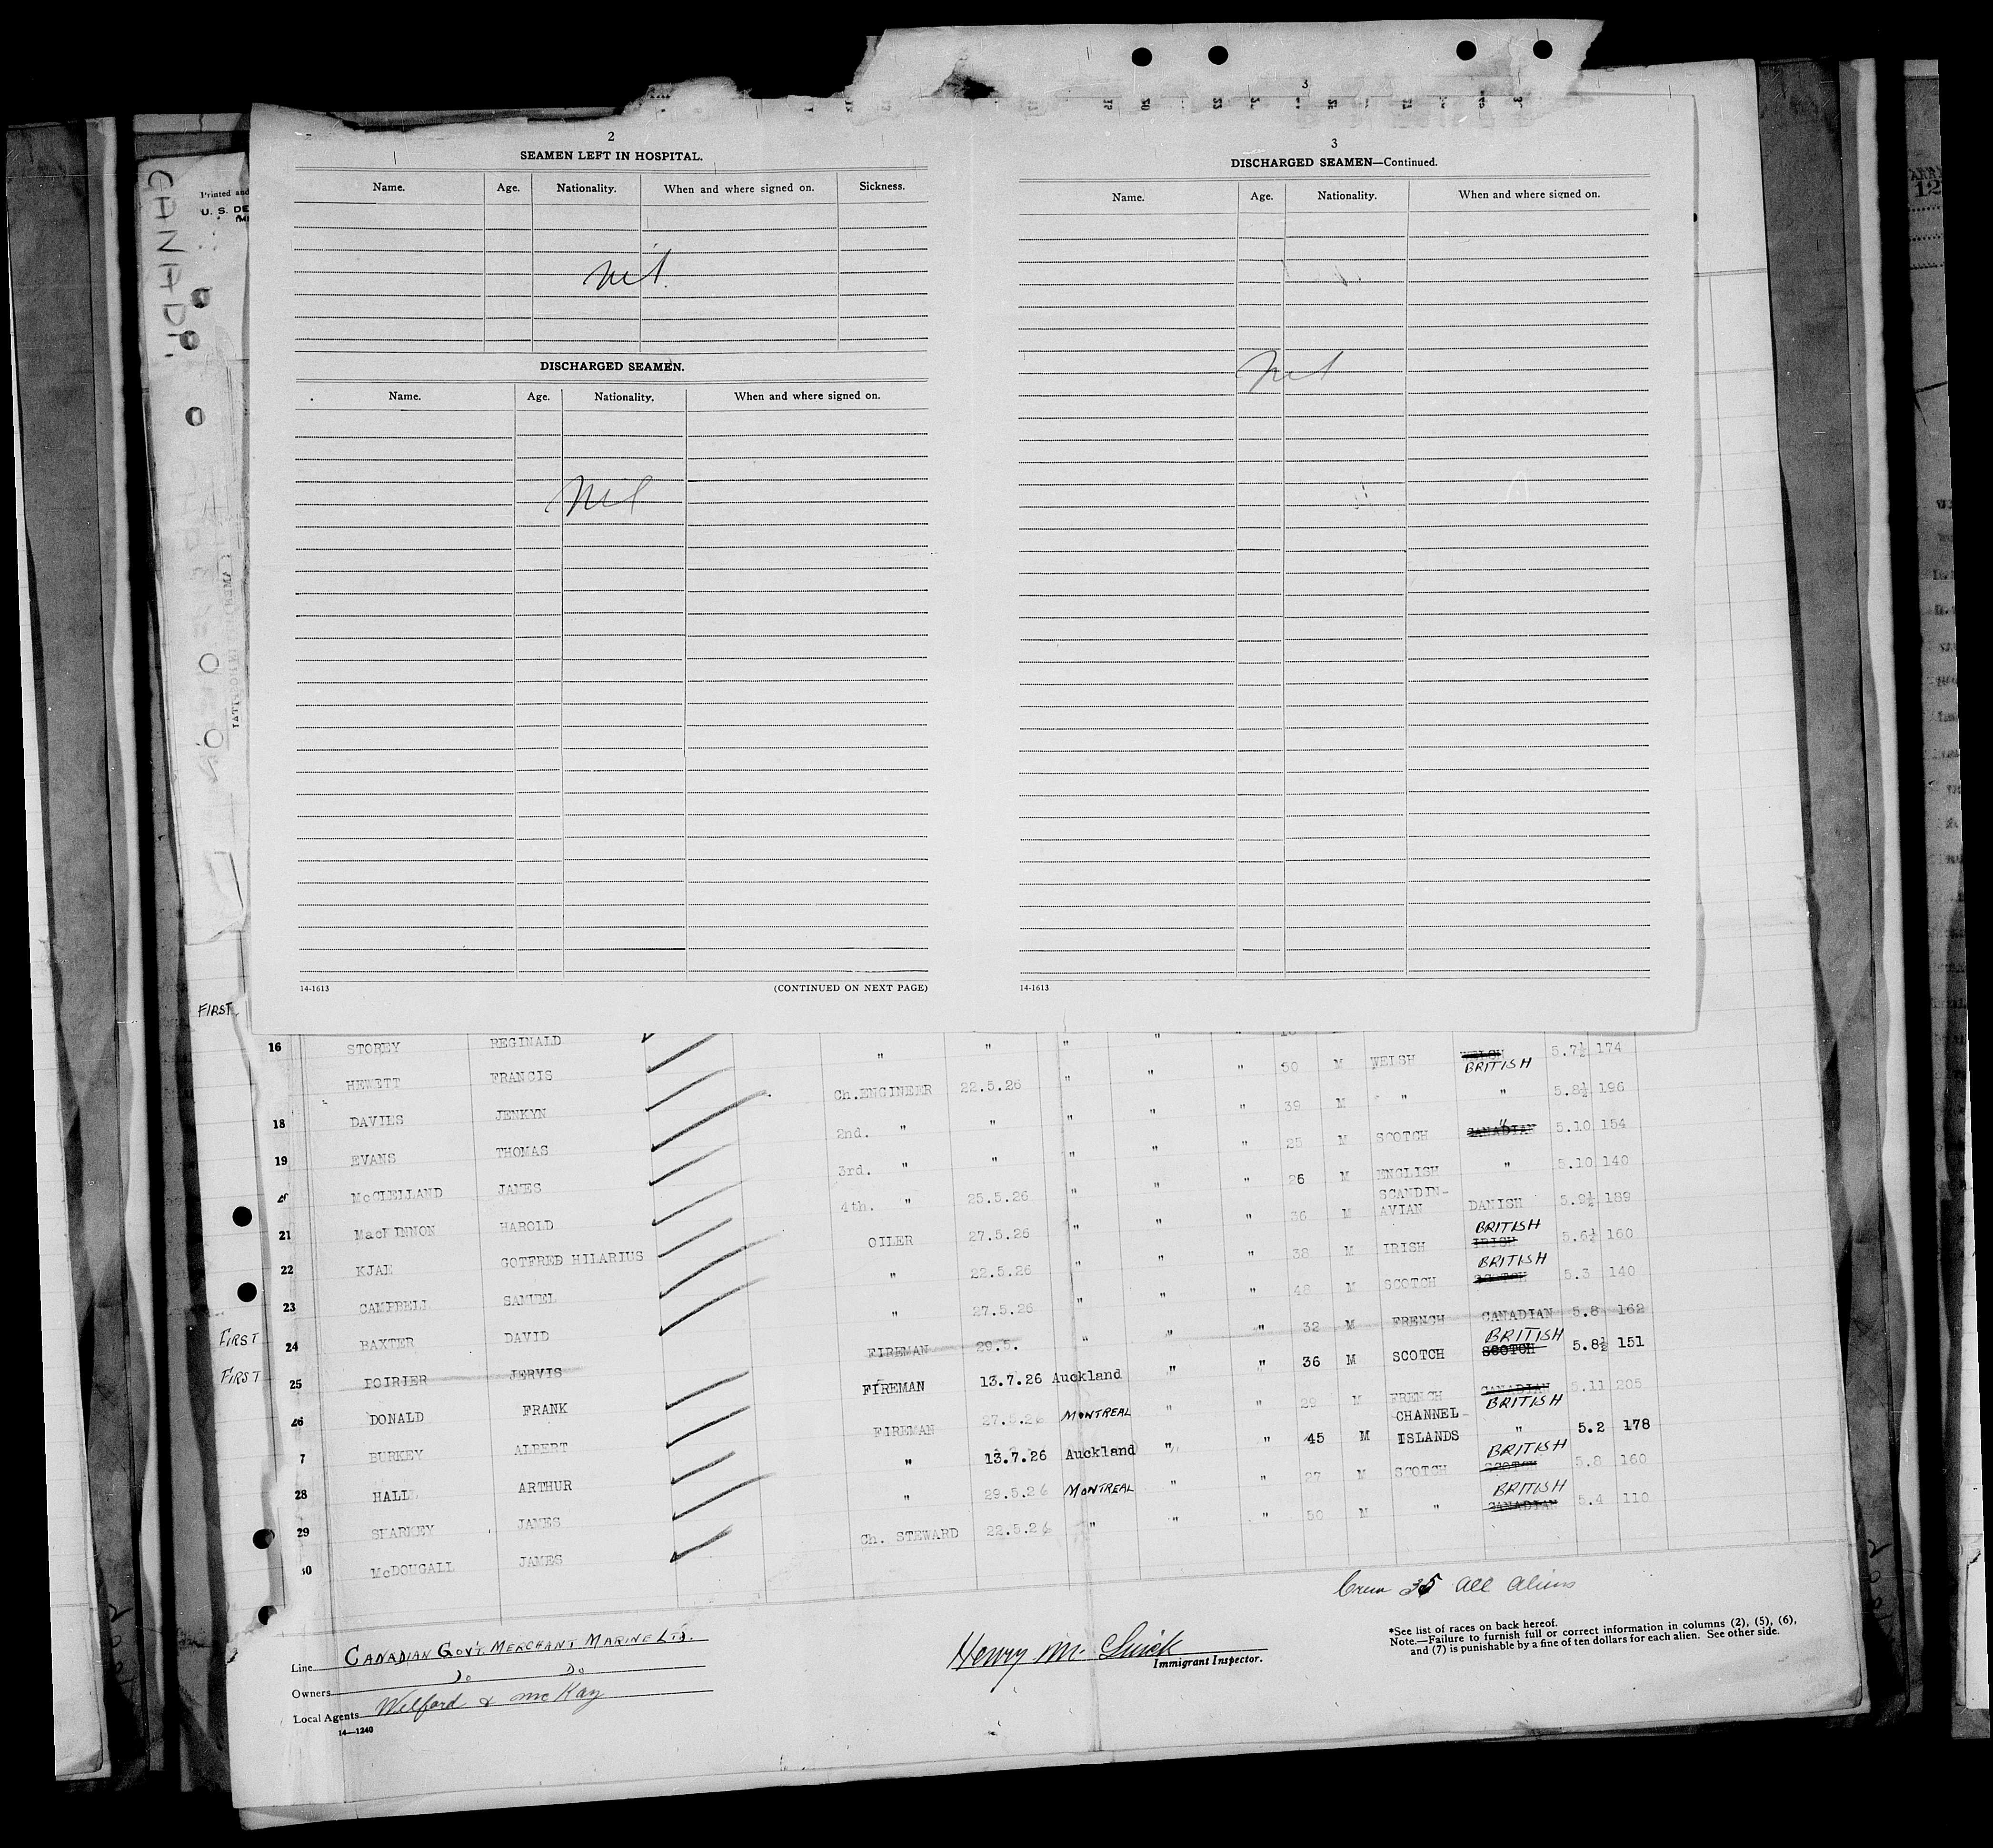 2
SEAMEN LEFT IN HOSPITAL.
Name. Age. Nationality. When and where signed on. Sickness.
Nil.
DISCHARGED SEAMEN.
Name. Age. Nationality. When and where signed on.
Nil
14-1613 (CONTINUED ON NEXT PAGE)
3
3
DISCHARGED SEAMEN—Continued.
Name. Age. Nationality. When and where signed on.
Nil
14-1613
CANADA
Printed and
U. S. DE
FIRST
16 STOREY REGINALD " " "
HEWETT FRANCIS Ch. ENGINEER 22.5.26 " " " 50 M WELSH WELSH BRITISH 5.7½ 174
18 DAVIES JENKYN 2nd. " " " " " 39 M " " 5.8½ 196
19 EVANS THOMAS 3rd. " " " " " 25 M SCOTCH CANADIAN " 5.10 154
McCLELLAND JAMES 4th. " 25.5.26 " " " 26 M ENGLISH " 5.10 140
21 MacKINNON HAROLD OILER 27.5.26 " " " 36 M SCANDIN-AVIAN DANISH 5.9½ 189
22 KJAE GOTFRED HILARIUS " 22.5.26 " " " 38 M IRISH IRISH BRITISH 5.6½ 160
23 CAMPBELL SAMUEL " 27.5.26 " " " 48 M SCOTCH SCOTCH BRITISH 5.3 140
FIRST 24 BAXTER DAVID FIREMAN 29.5. " " " 32 M FRENCH CANADIAN 5.8 162
FIRST 25 POIRIER JERVIS FIREMAN 13.7.26 Auckland " " 36 M SCOTCH SCOTCH BRITISH 5.8½ 151
26 DONALD FRANK FIREMAN 27.5.26 MONTREAL " " 29 M FRENCH CANADIAN BRITISH 5.11 205
7 BURKEY ALBERT " 13.7.26 Auckland " " 45 M CHANNEL- ISLANDS " 5.2 178
28 HALL ARTHUR " 29.5.26 MONTREAL " " 27 M SCOTCH SCOTCH BRITISH 5.8 160
29 SHARKEY JAMES Ch. STEWARD 22.5.26 " " " 50 M " CANADIAN BRITISH 5.4 110
30 McDOUGALL JAMES
Crew 35 All Aliens
Line CANADIAN GOVT. MERCHANT MARINE LTD.
Owners Do Do
Local Agents Welford & McKay
14—1240
Henry M.
Immigrant Inspector.
*See list of races on back hereof.
Note.—Failure to furnish full or correct information in columns (2), (5), (6),
and (7) is punishable by a fine of ten dollars for each alien. See other side.